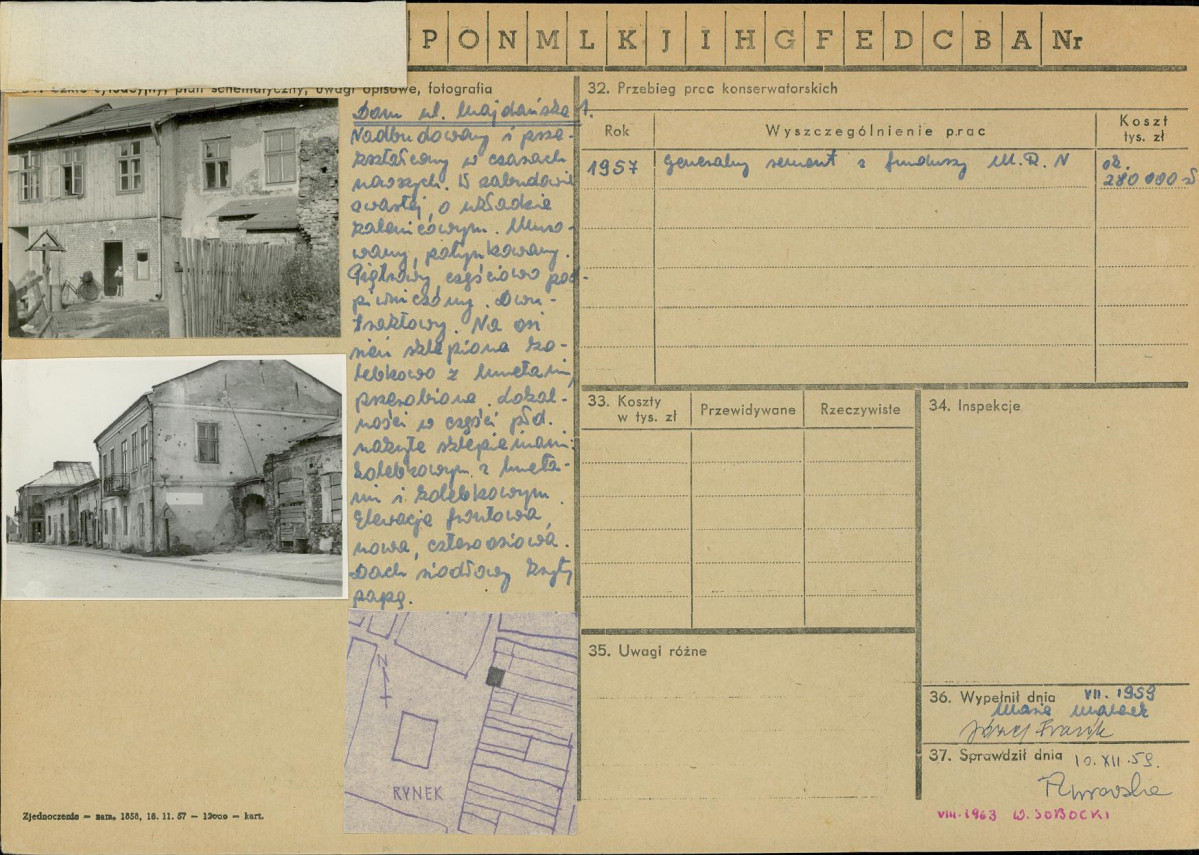 P O N M L K J I H G F E D C B A Nr
31. Szkic sytuacyjny, plan schematyczny, uwagi opisowe, fotografia
Dom ul. Majdańska 1.
Nadbudowany i prze-
kształcony w czasach
naszych. W zabudowie
zwartej, o układzie
kalenicowym. Muro-
wany, potynkowany.
Piętrowy częściowo pod-
piwniczony. Dwu-
traktowy. Na osi
sień sklepiona ko-
lebkowo z lunetami,
przerobiona. Lokal-
ności w części płd.
nakryte sklepieniami:
kolebkowym z luneta-
mi i kolebkowym.
Elewacja frontowa
nowa, czteroosiowa.
Dach siodłowy kryty
papą.
N
RYNEK
32. Przebieg prac konserwatorskich
Rok
Wyszczególnienie prac
Koszt
tys. zł
1957
Generalny remont z funduszy M.R.N
ok.
280 000 zł
33. Koszty
w tys. zł
Przewidywane
Rzeczywiste
34. Inspekcje
35. Uwagi różne
36. Wypełnił dnia VII. 1959
Maria
Józef Frazik
37. Sprawdził dnia 10.XII.59.
VIII-1963 W. SOBOCKI
Zjednoczenie — zam. 1858, 16. 11. 57 — 12000 — kart.